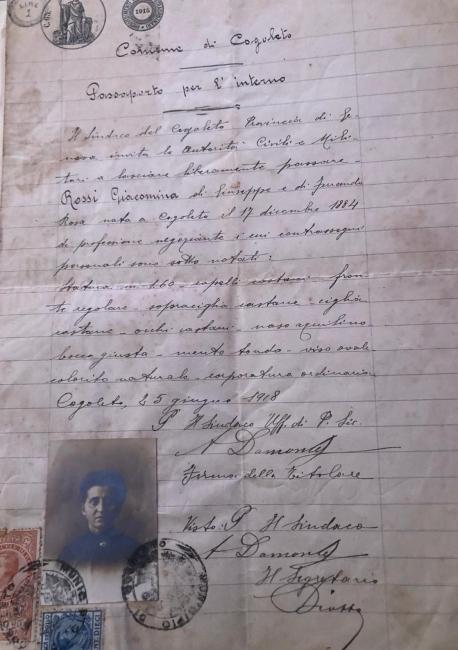 LIRE
1
1915
Comune di Cogoleto
Passaporto per l'interno
Il Sindaco del Cogoleto Provincia di Ge-
nova invita le Autorità Civili e Mili-
tari a lasciare liberamente passare
Rossi Giacomina di Giuseppe e di
Rosa nata a Cogoleto il 17 dicembre 1884
di professione negoziante i cui contrassegni
personali sono sotto notati:
Statura m 1.60 - capelli castani - fron-
te regolare - sopraciglia castane - ciglia
castane - occhi castani - naso aquilino
bocca giusta - mento tondo - viso ovale
colorito naturale - corporatura ordinaria
Cogoleto, 25 giugno 1918
P. Il Sindaco Uff. di P. Sic.
Firma della Titolare
Visto: P. Il Sindaco
Il Segretario